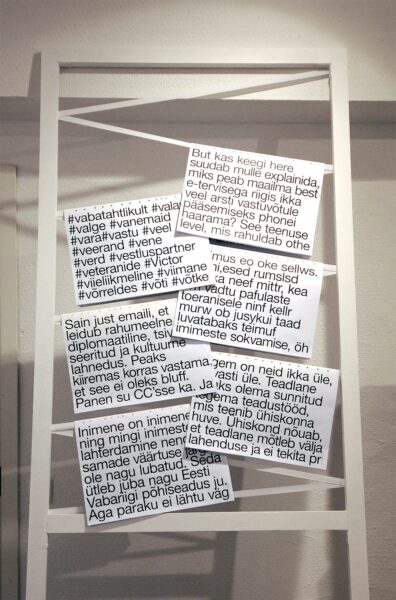 But kas keegi here
suudab mulle explainida,
miks peab maailma best
e-tervisega riigis ikka
veel arsti vastuvõtule
pääsemiseks phonei
haarama? See teenuse
level, mis rahuldab othe
#vabatahtlikult
#valge #vanemaid
#vara#vastu #veel
#veerand #vene
#verd #vestluspartner
#veteranide #victor
#viieliikmeline #viimane
#võrreldes #võti #võtke
eo oke sellws.
neef mittr, kea
pafulaste
toeranisele ninf kellr
murw ob jusykui taad
luvatabaks teimuf
imimeste sokvamise, öh
Sain just emaili, et
leidub rahumeelne
diplomaatiline,
seeritud ja kultuurne
lahnedus. Peaks
kiiremas korras vastama
et see ei oleks bluff.
Panen su CC'sse ka. Ja
on neid ikka üle,
üle. Teadlane
olema sunnitud
teadustööd,
mis teenib ühiskonna
huve. Ühiskond nõuab,
et teadlane mõtleb välja
lahenduse ja ei tekita pr
Inimene on
ning mingi
lahterdamine
samade väärtuse
ole nagu lubatud. Seda
ütleb juba nagu Eesti
Vabariigi põhiseadus ju.
Aga paraku ei lähtu väg